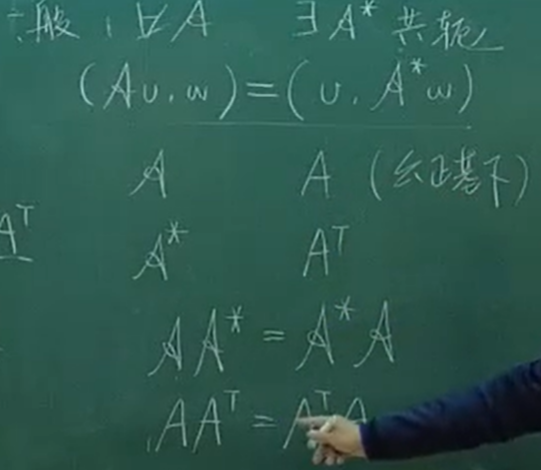 一般，∀A ∃A* 共轭
(Av, w) = (v, A*w)
A A (公正基下)
Aᵀ A* Aᵀ
AA* = A*A
AAᵀ = AᵀA